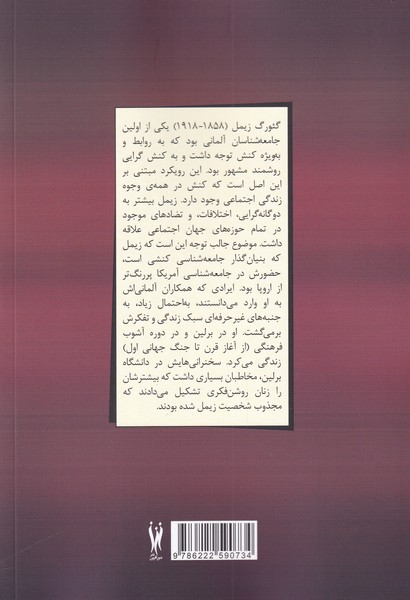 گئورگ زیمل (۱۸۵۸-۱۹۱۸) یکی از اولین
جامعه‌شناسان آلمانی بود که به روابط و
به‌ویژه کنش توجه داشت و به کنش گرایی
روشمند مشهور بود. این رویکرد مبتنی بر
این اصل است که کنش در همه‌ی وجوه
زندگی اجتماعی وجود دارد. زیمل بیشتر به
دوگانه‌گرایی، اختلافات، و تضادهای موجود
در تمام حوزه‌های جهان اجتماعی علاقه
داشت. موضوع جالب توجه این است که زیمل
که بنیان‌گذار جامعه‌شناسی کنشی است،
حضورش در جامعه‌شناسی آمریکا پررنگ‌تر
از اروپا بود. ایرادی که همکاران آلمانی‌اش
به او وارد می‌دانستند، به‌احتمال زیاد، به
جنبه‌های غیرحرفه‌ای سبک زندگی و تفکرش
برمی‌گشت. او در برلین و در دوره آشوب
فرهنگی (از آغاز قرن تا جنگ جهانی اول)
زندگی می‌کرد. سخنرانی‌هایش در دانشگاه
برلین، مخاطبان بسیاری داشت که بیشترشان
را زنان روشن‌فکری تشکیل می‌دادند که
مجذوب شخصیت زیمل شده بودند.
9 786222 590734